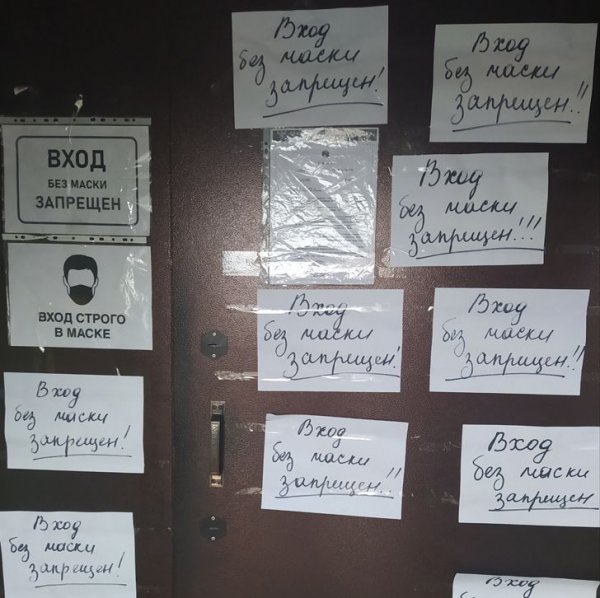 Вход
без маски
запрещен!
Вход
без маски
запрещен!!
ВХОД
БЕЗ МАСКИ
ЗАПРЕЩЕН
Вход
без маски
запрещен!!!
ВХОД СТРОГО
В МАСКЕ
Вход
без маски
запрещен!
Вход
без маски
запрещен!!
Вход
без маски
запрещен!
Вход
без маски
запрещен!!
Вход
без маски
запрещен
Вход
без маски
запрещен!
Вход